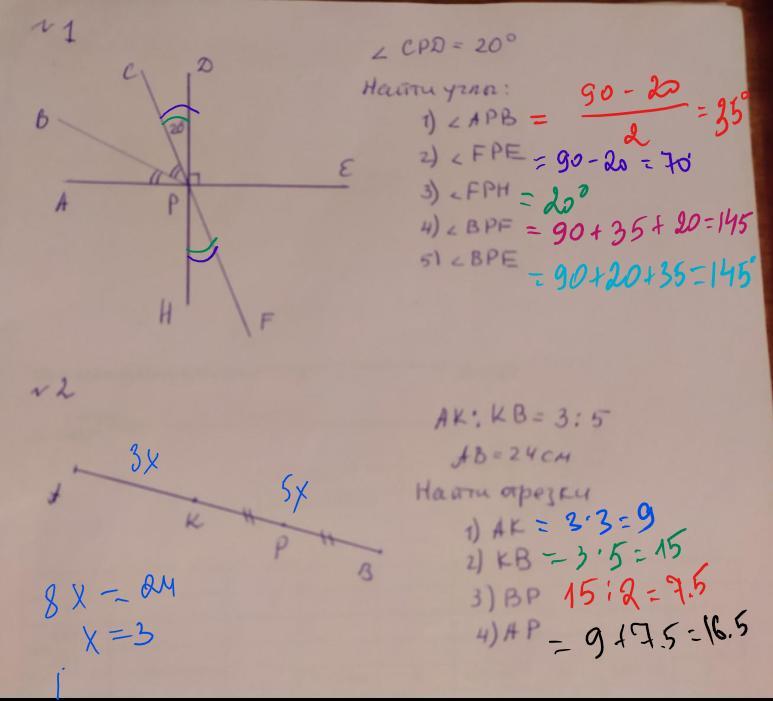 №1
∠ CPD = 20°
Найти углы:
1) ∠ APB = (90 - 20) / 2 = 35°
2) ∠ FPE = 90 - 20 = 70°
3) ∠ FPH = 20°
4) ∠ BPF = 90 + 35 + 20 = 145
5) ∠ BPE = 90 + 20 + 35 = 145°
C D
B 20
A P E
H F
№2
AK : KB = 3 : 5
AB = 24 см
Найти отрезки
1) AK = 3 · 3 = 9
2) KB = 3 · 5 = 15
3) BP 15 : 2 = 7.5
4) AP = 9 + 7.5 = 16.5
3x
5x
A K P B
8x = 24
x = 3